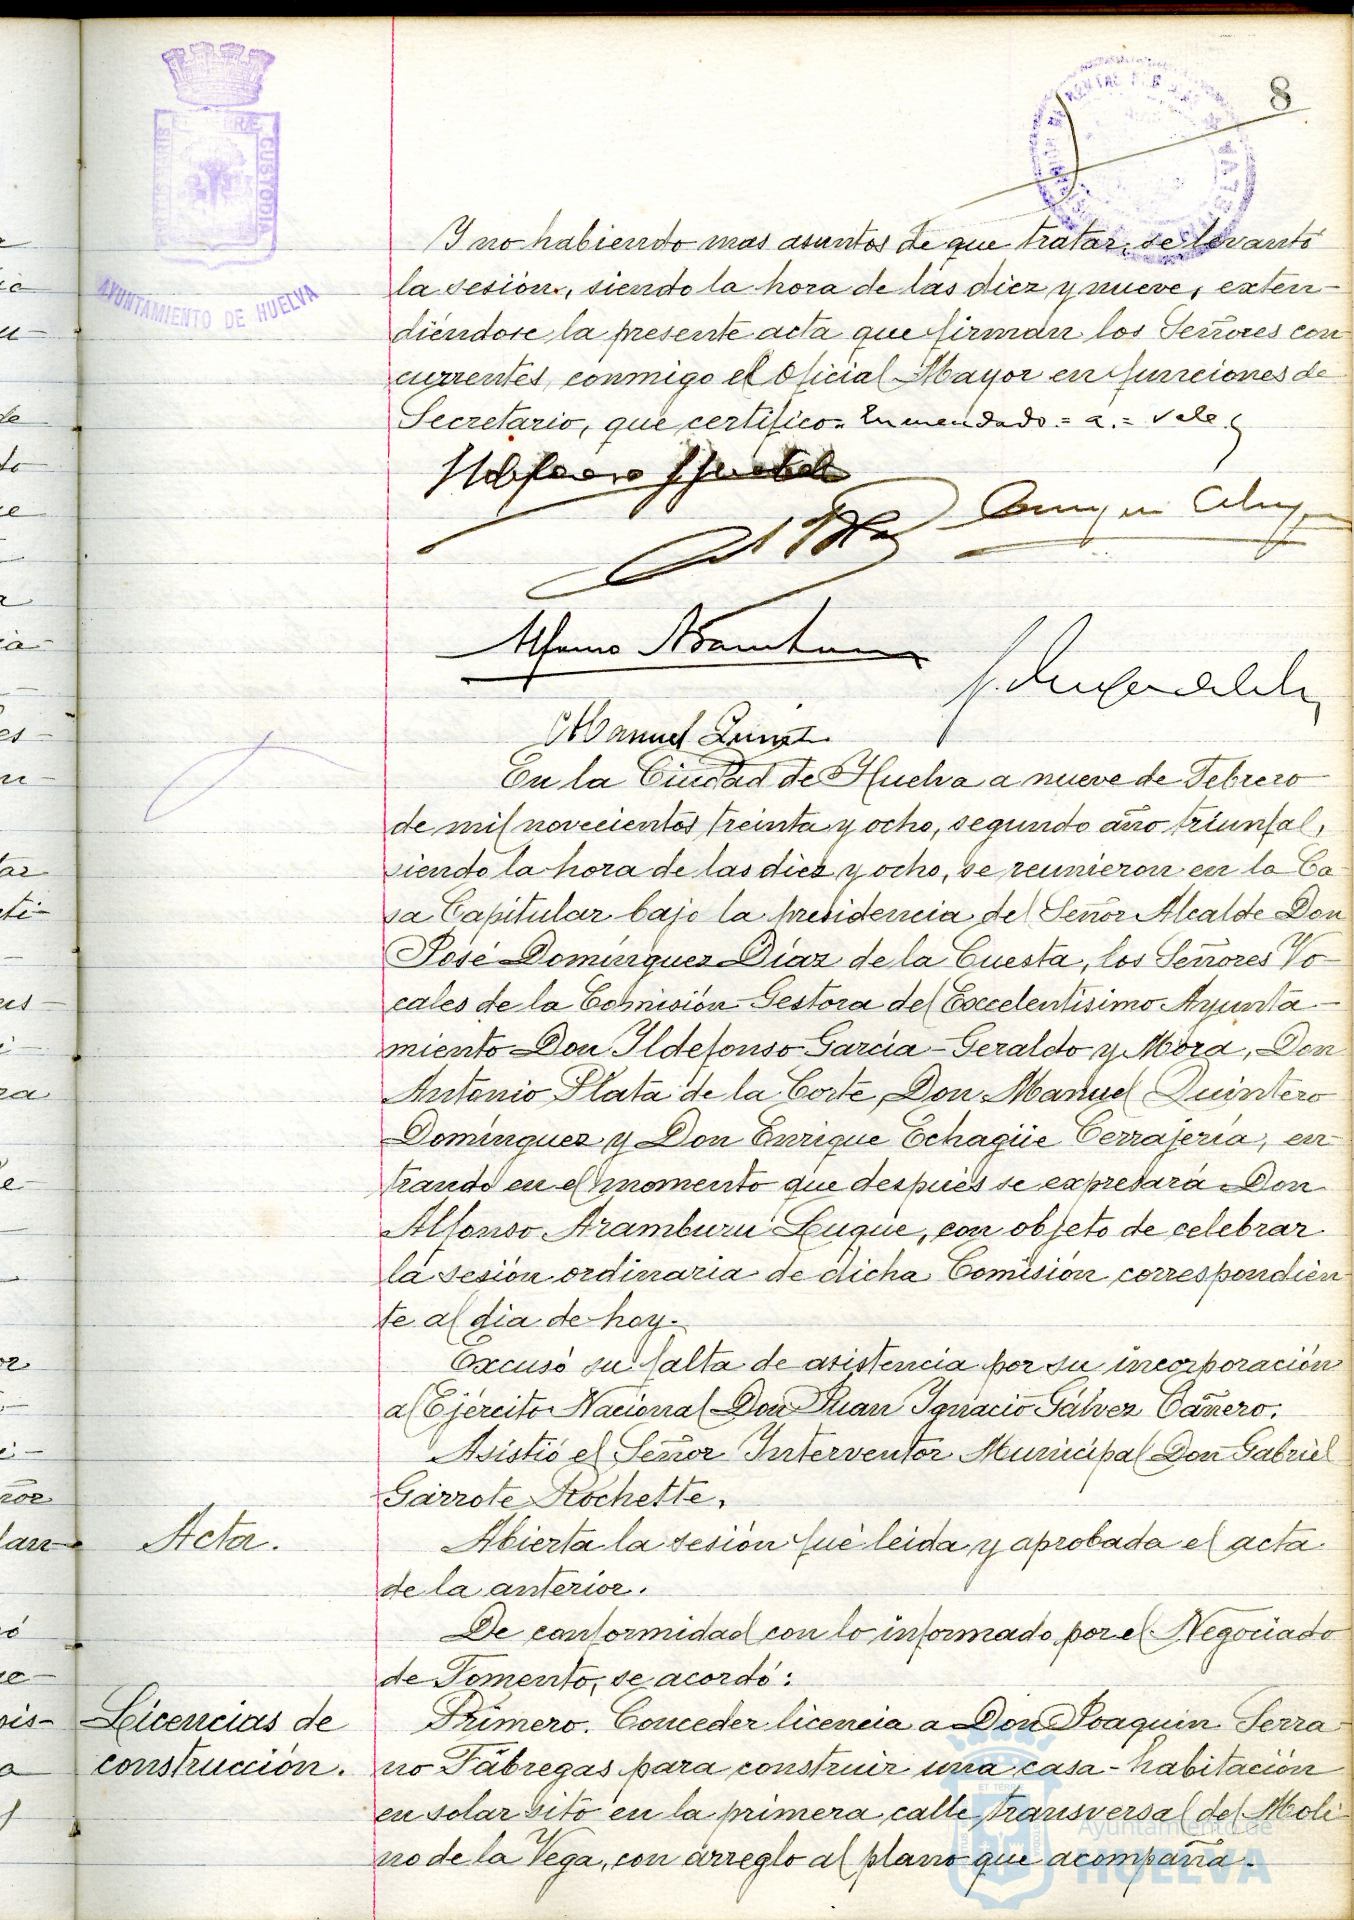 8
AYUNTAMIENTO DE HUELVA
CUSTODIA
Y no habiendo mas asuntos de que tratar, se levantó
la sesión, siendo la hora de las diez y nueve, exten-
diéndose la presente acta que firman los Señores con
currentes, conmigo el Oficial Mayor en funciones de
Secretario, que certifico= Enmendado.= a.= vale
Alfonso Aramburu
Manuel Quint
En la Ciudad de Huelva a nueve de Febrero
de mil novecientos treinta y ocho, segundo año triunfal,
siendo la hora de las diez y ocho, se reunieron en la Ca
sa Capitular bajo la presidencia del Señor Alcalde Don
José Domínguez Díaz de la Cuesta, los Señores Vo-
cales de la Comisión Gestora del Excelentísimo Ayunta-
miento Don Ildefonso García-Geraldo y Mora, Don
Antonio Plata de la Corte, Don Manuel Quintero
Domínguez y Don Enrique Echagüe Cerrajería, en-
trando en el momento que después se expresará Don
Alfonso Aramburu Luque, con objeto de celebrar
la sesión ordinaria de dicha Comisión correspondien
te al dia de hoy.
Excusó su falta de asistencia por su incorporación
al Ejército Nacional Don Juan Ignacio Gálvez Cañero.
Asistió el Señor Interventor Municipal Don Gabriel
Garrote Rochette.
Acta.
Abierta la sesión fué leida y aprobada el acta
de la anterior.
De conformidad con lo informado por el Negociado
de Fomento, se acordó:
Licencias de
construcción.
Primero. Conceder licencia a Don Joaquin Serra-
no Fábregas para construir una casa-habitación
en solar sito en la primera calle transversal del Moli
no de la Vega, con arreglo al plano que acompaña.
Ayuntamiento de
HUELVA